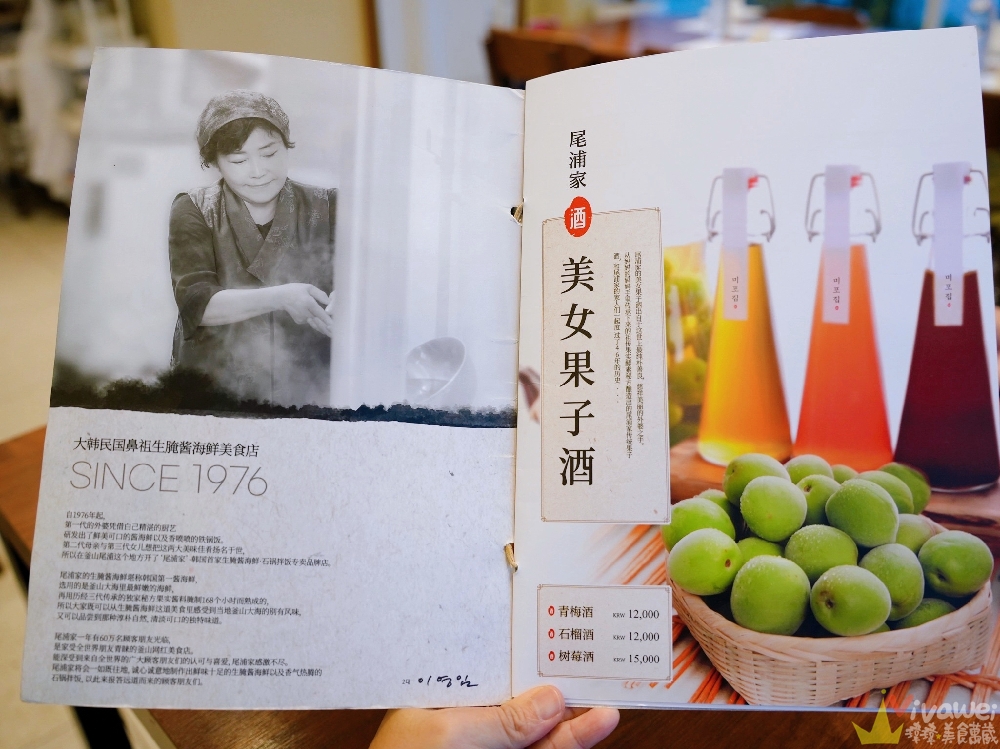 大韩民国鼻祖生腌酱海鲜美食店
SINCE 1976
自1976年起,
第一代的外婆凭借自己精湛的厨艺
研发出了鲜美可口的酱海鲜以及香喷喷的铁锅饭,
第二代母亲与第三代女儿想把这两大美味佳肴扬名于世,
所以在釜山尾浦这个地方开了‘尾浦家’-韩国首家生腌酱海鲜·石锅拌饭专卖品牌店。
尾浦家的生腌酱海鲜堪称韩国第一酱海鲜,
选用的是釜山大海里最鲜嫩的海鲜,
再用历经三代传承的独家秘方果实酱料腌制168个小时而熟成的,
所以大家既可以从生腌酱海鲜这道美食里感受到当地釜山大海的别有风味,
又可以品尝到那种淳朴自然, 清淡可口的独特味道。
尾浦家一年有60万名顾客朋友光临,
是家受全世界朋友青睐的釜山网红美食店。
能深受到来自全世界的广大顾客朋友们的认可与喜爱, 尾浦家感激不尽。
尾浦家将会一如既往地, 诚心诚意地制作出鲜味十足的生腌酱海鲜以及香气热腾的
石锅拌饭, 以此来报答远道而来的顾客朋友们。
이영임
尾浦家
酒
美女果子酒
미포집
미포집
미포집
青梅酒 KRW 12,000
石榴酒 KRW 12,000
树莓酒 KRW 15,000
ivawei
美食萬歲